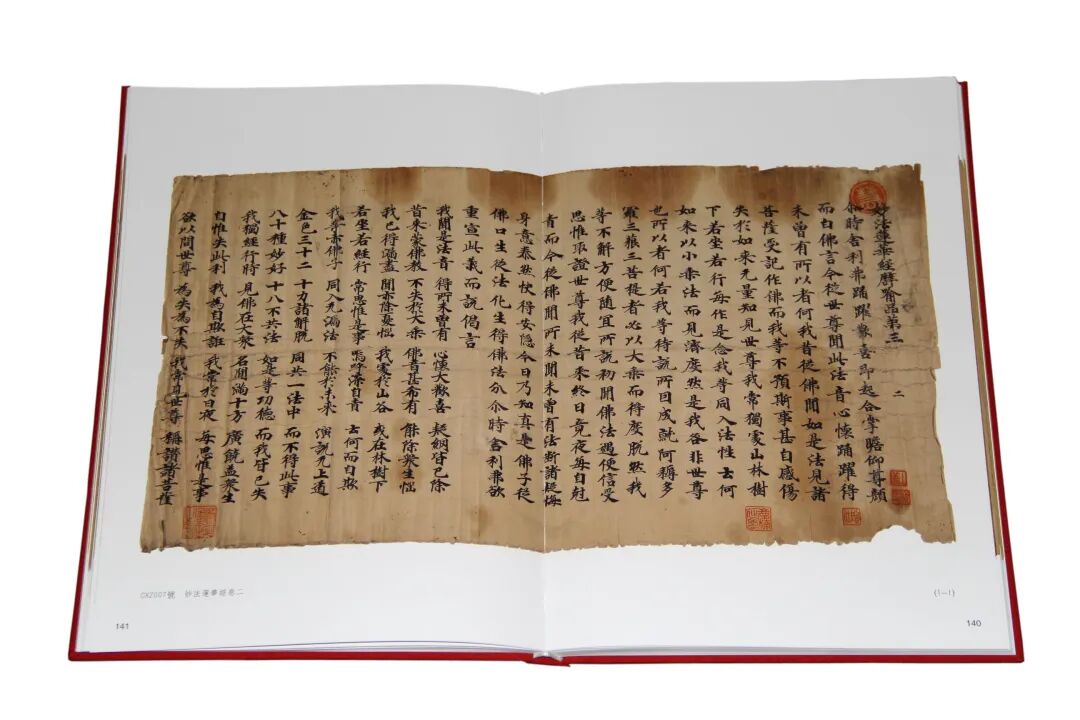 妙法蓮華經譬喻品第三 二
尒時舍利弗踊躍歡喜即起合掌瞻仰尊顏
而白佛言今從世尊聞此法音心懷踊躍得
未曾有所以者何我昔從佛聞如是法見諸
菩薩受記作佛而我等不預斯事甚自感傷
失於如來无量知見世尊我常獨處山林樹
下若坐若行每作是念我等同入法性云何
如來以小乘法而見濟度然是我咎非世尊
也所以者何若我等待說所因成就阿耨多
羅三藐三菩提者必以大乘而得度脫然我
等不解方便隨宜所說初聞佛法遇便信受
思惟取證世尊我從昔來終日竟夜每自剋
責而今從佛聞所未聞未曾有法斷諸疑悔
身意泰然快得安隱今日乃知真是佛子從
佛口生從法化生得佛法分尒時舍利弗欲
重宣此義而說偈言
我聞是法音 得所未曾有 心懷大歡喜 疑網皆已除
昔來蒙佛教 不失於大乘 佛音甚希有 能除衆生惱
我已得漏盡 聞亦除憂惱 我處於山谷 或在林樹下
若坐若經行 常思惟是事 嗚呼深自責 云何而自欺
我等亦佛子 同入无漏法 不能於未來 演說无上道
金色三十二 十力諸解脫 同共一法中 而不得此事
八十種妙好 十八不共法 如是等功德 而我皆已失
我獨經行時 見佛在大衆 名聞滿十方 廣饒益衆生
自惟失此利 我為自欺誑 我常於日夜 每思惟是事
欲以問世尊 為失為不失 我常見世尊 稱讚諸菩薩
(1—1)
140
GXZ007號 妙法蓮華經卷二
141